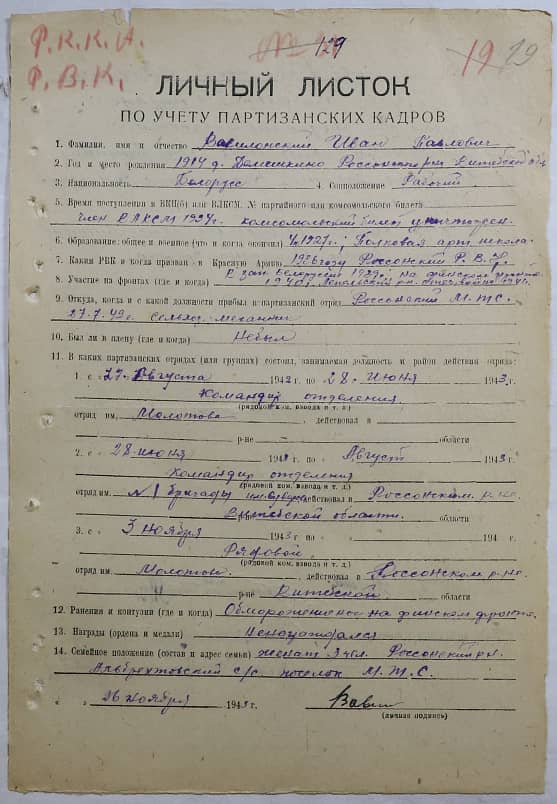 Р.К.К.А.
Р.В.К.
129
19 19
ЛИЧНЫЙ ЛИСТОК
ПО УЧЕТУ ПАРТИЗАНСКИХ КАДРОВ
1. Фамилия, имя и отчество Вавилонский Иван Павлович
2. Год и место рождения 1914 д. Россонского р-на Витебской обл.
3. Национальность Белорусс 4. Соцположение Рабочий
5. Время поступления в ВКП(б) или ВЛКСМ, № партийного или комсомольского билета
член ВЛКСМ 1927г. комсомольский билет уничтожен.
6. Образование: общее и военное (что и когда окончил) 1927г.; Полковая арт. школа.
7. Каким РВК и когда призван в Красную Армию 1936 году Россонский Р.В.К.
8. Участие на фронтах (где и когда) В зап. Белоруссии 1939г. на финском фронте
1940г.
9. Откуда, когда и с какой должности прибыл в партизанский отряд Россонский М.Т.С.
27.7.42г. механик
10. Был ли в плену (где и когда) Небыл
11. В каких партизанских отрядах (или группах) состоял, занимаемая должность и район действия отряда:
1. с 27 Августа 1942 г. по 28 июня 1943 г.
командир отделения
(рядовой ком. взвода и т. д.)
отряд им. Молотова, действовал в
р-не области
2. с 28 июня 1943 г. по Август 1943 г.
командир отделения
(рядовой ком. взвода и т. д.)
отряд им. №1 бригады действовал в Россонском р-не
Витебской области. области
3. с 3 ноября 1943 г. по 194 г.
Рядовой.
(рядовой ком. взвода и т. д.)
отряд им. Молотов. действовал в Россонском р-не.
р-не Витебской области
12. Ранения и контузии (где и когда) Обморожение на финском фронте.
13. Награды (ордена и медали) Ненаграждался
14. Семейное положение (состав и адрес семьи) женат Россонский р-н.
Альбрехтовский с/с. поселок М.Т.С.
« » 26 ноября 1943 г.
(личная подпись)